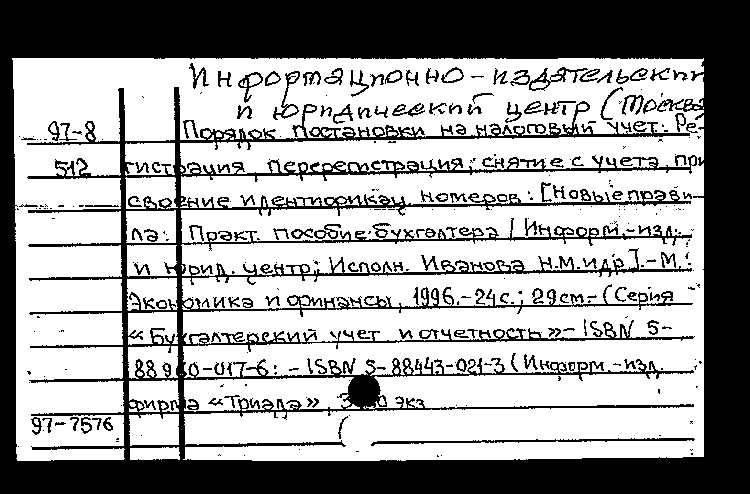 Информационно-издательский
и юридический центр (Москва
97-8 Порядок постановки на налоговый учет: Ре-
512 гистрация, перерегистрация; снятие с учета, при
своение идентификац. номеров: [Новые прави-
ла: Практ. пособие бухгалтера / Информ.-изд.
и юрид. центр; Исполн. Иванова Н.М. и др.].-М.:
Экономика и финансы, 1996.-24с.; 29см.-(Серия
«Бухгалтерский учет и отчетность»-ISBN 5-
-017-6: -ISBN 5-88443-021-3 (Информ.-изд.
фирма «Триада», экз
97-7576